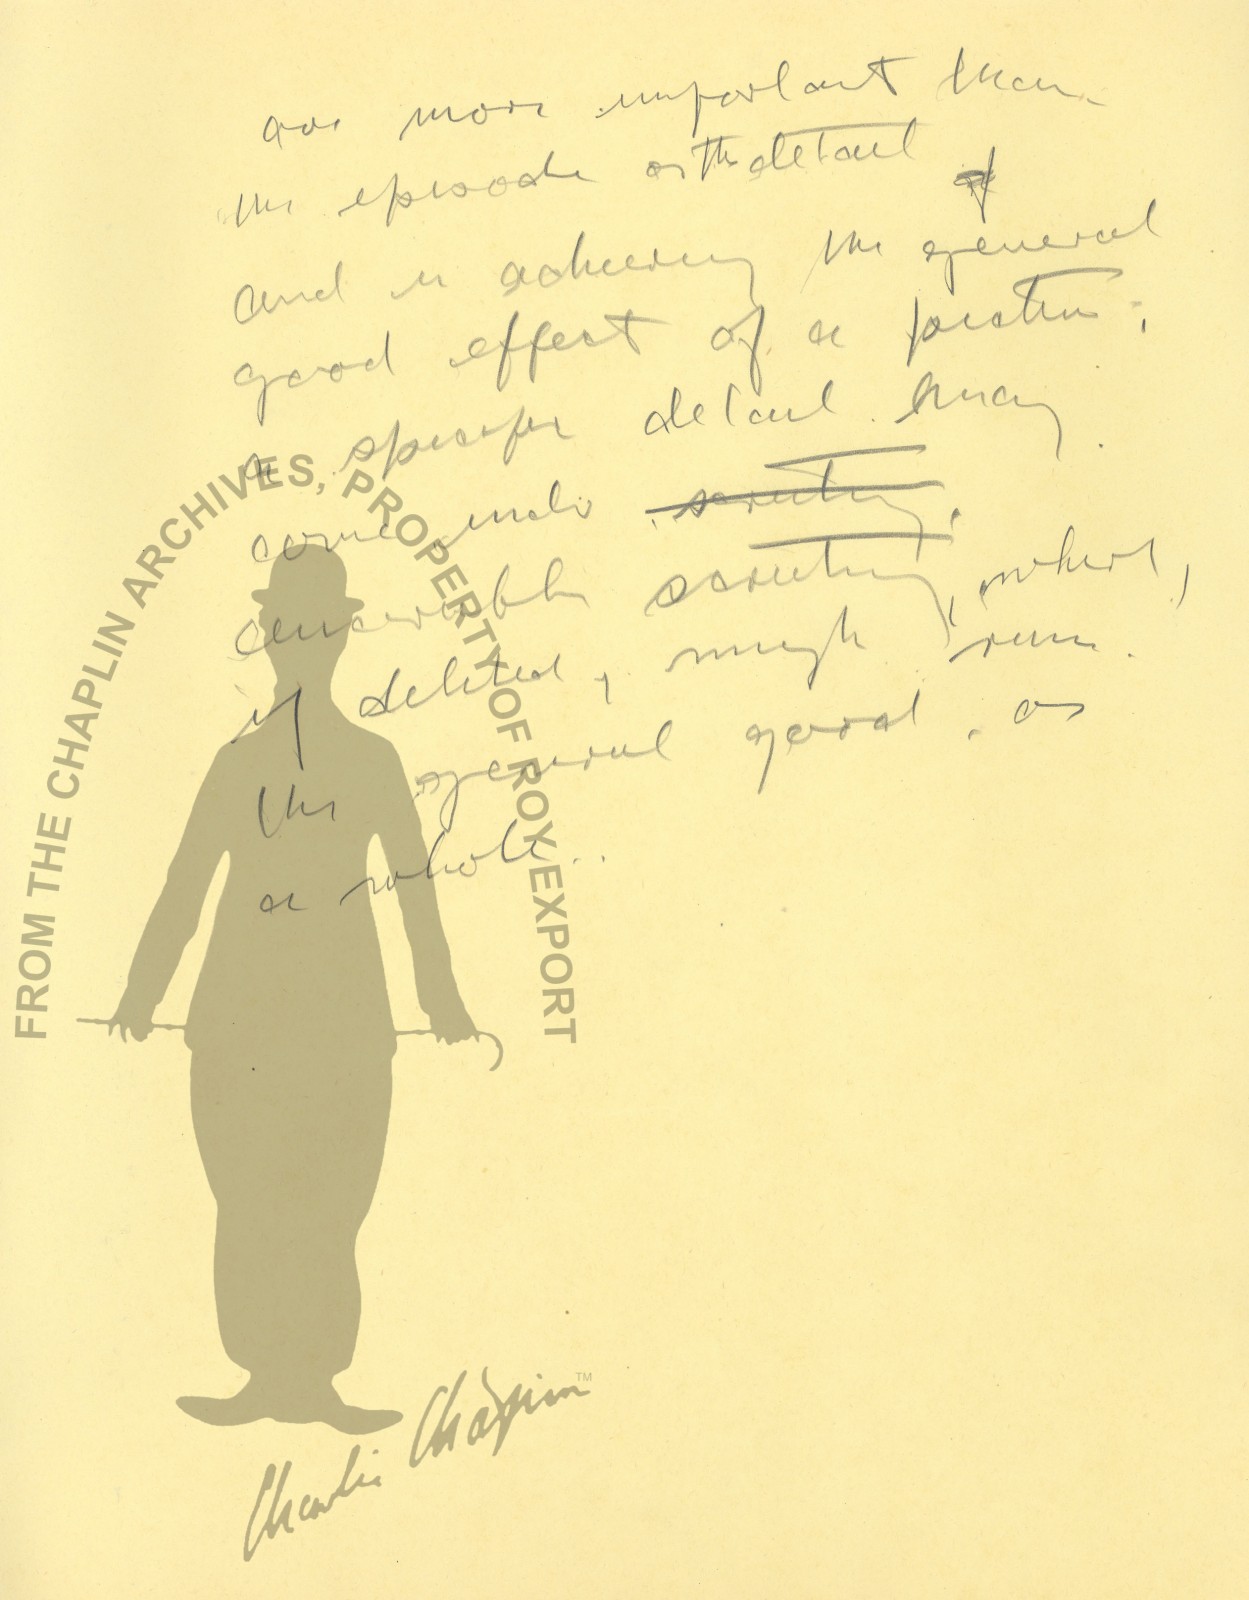 are more important than
the episode or the detail
and in achieving the general
good effect of a picture;
a specific detail may
come under scrutiny,
scrutiny, where,
if deleted, might ruin
the general good as
a whole..
FROM THE CHAPLIN ARCHIVES, PROPERTY OF ROY EXPORT
Charlie Chaplin TM